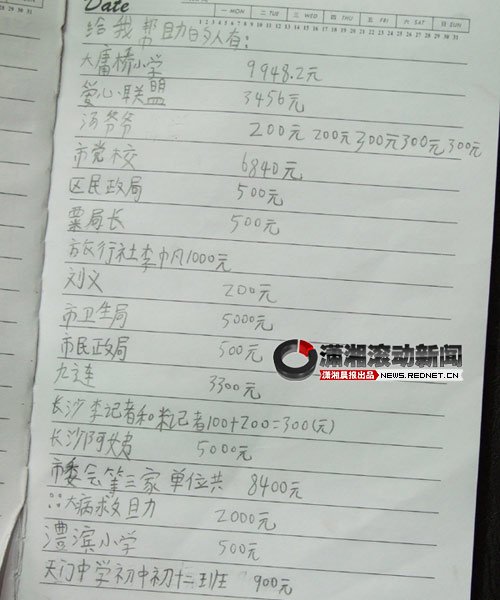 Date
一 MON 二 TUE 三 WED 四 THU 五 FRI 六 SAT 日 SUN
给我帮助的人有：
大庸桥小学 9948.2元
爱心联盟 3456元
汤爷爷 200元 200元 300元 300元 300元
市党校 6840元
区民政局 500元
粟局长 500元
旅行社李中凡1000元
刘义 200元
市卫生局 5000元
市民政局 500元
九立连 3300元
长沙李记者和米记者100+200=300(元)
长沙阿姨 5000元
市委会第三家单位共 8400元
大病救助 2000元
澧滨小学 500元
天门中学初中初十三班 900元
潇湘滚动新闻
潇湘晨报出品 NEWS.REDNET.CN